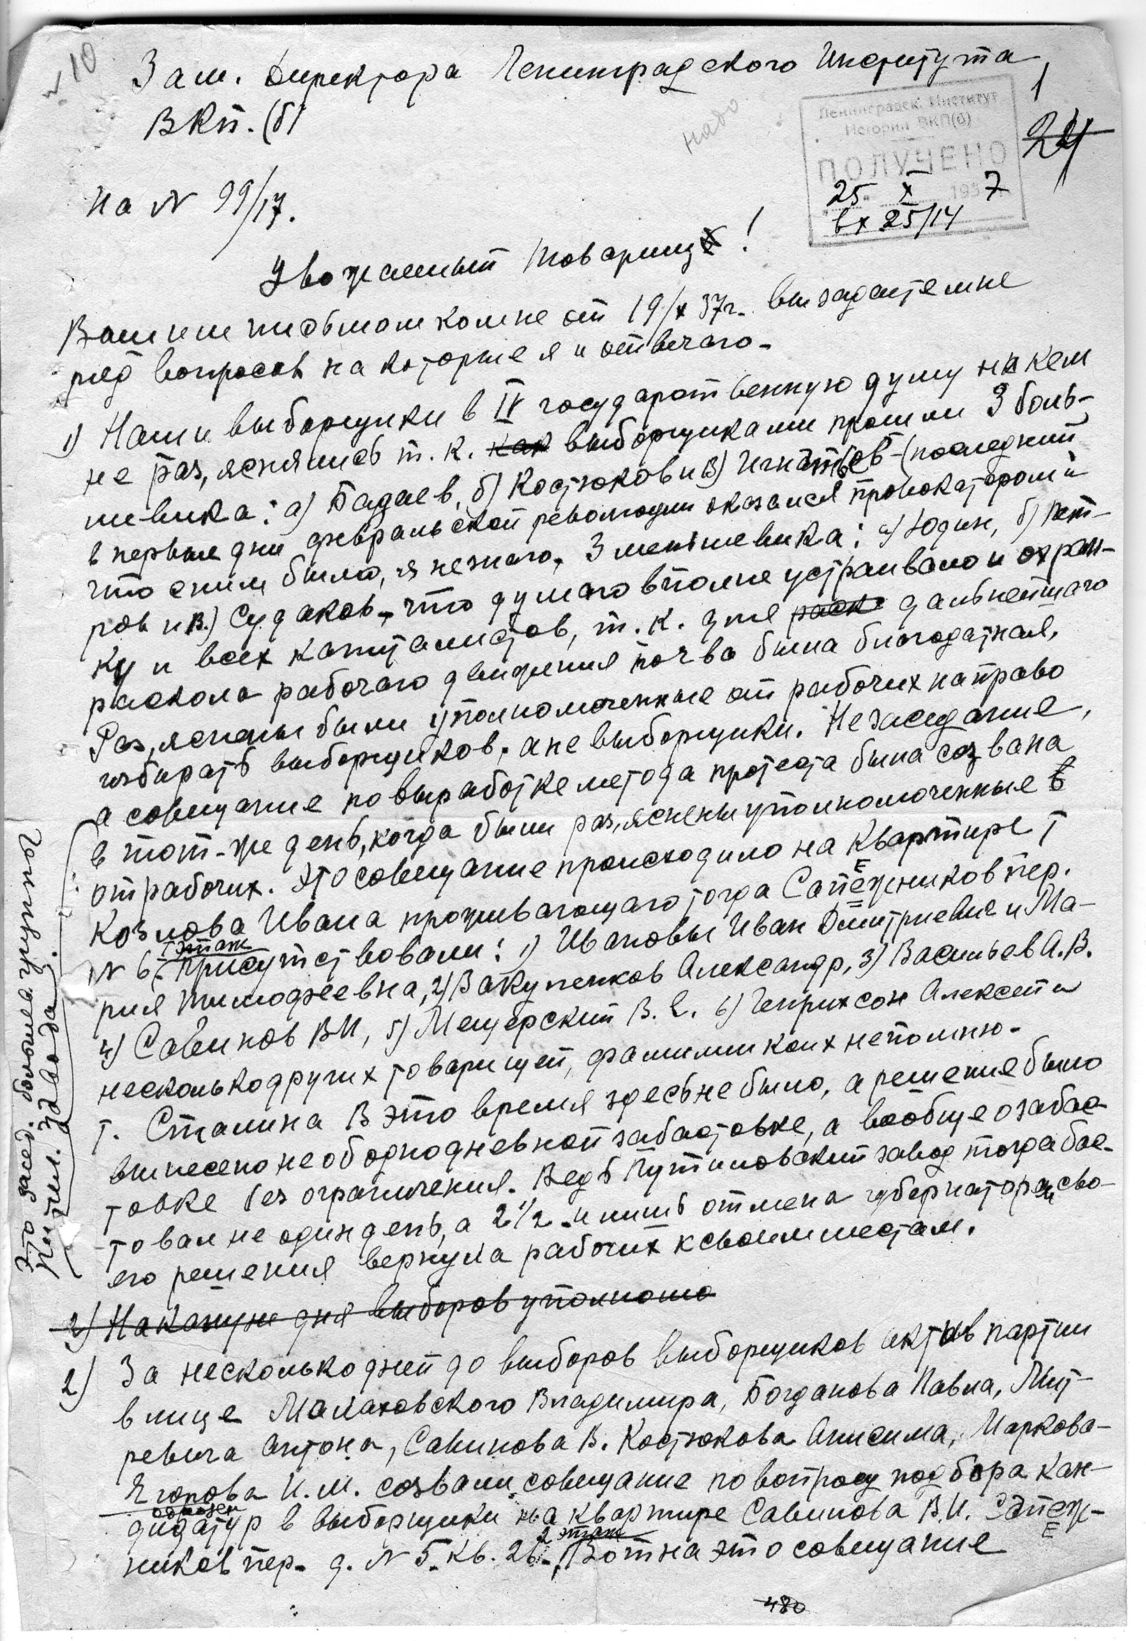 10
Зам. Директора Ленинградского Института
ВКП.(б)
1
надо
Ленинградск. Институт
Истории ВКП(б)
ПОЛУЧЕНО
25 X 1937
вх 25/14
24
На № 99/17.
Уважаемый Товарищ!
Вашим письмом ко мне от 19/X 37г. вы задаете мне
ряд вопросов на которые я и отвечаю.
1) Наши выборщики в IV государственную думу никем
не раз,яснялись т. к. как выборщиками прошли 3 боль-
шевика: а) Бадаев, б) Костюков и в) Игнатьев - (последний
в первые дни февральской революции оказался провокатором и
что с ним было, я не знаю. 3 меньшевика: а) Юдин, б) Пет-
ров и в) Судаков, что думаю вполне устраивало и охран-
ку и всех капиталистов, т. к. для раск дальнейшаго
раскола рабочаго движения почва была благодатная.
Раз,яснены были уполномоченные от рабочих на право
избирать выборщиков, а не выборщики. Не заседание,
а совещание по выработке метода протеста была созвана
в тот-же день, когда были раз,яснены уполномоченные
от рабочих. Это совещание происходило на квартире т
Козлова Ивана проживающаго тогда Сапежников пер.
№ 6. этаж присутствовали: 1) Ивановы Иван Дмитриевич и Ма-
рия Тимофеевна, 2) Вакуленков Александр, 3) Васильев А.В.
4) Савинов ВИ, 5) Мещерский В. Е. 6) Генрихсон Алексей и
несколько других товарищей, фамилии коих не помню.
т. Сталина в это время здесь не было, а решение было
вынесено не об однодневной забастовке, а вообще о забас-
товке без ограничения. Ведь Путиловский завод тогда бас-
товал не один день, а 2 1/2 и лишь отмена губернатором сво-
его решения вернула рабочих к своим местам.
Это засед. большев. группы
Путил. завода.
2) Накануне дня выборов уполномо
2) За несколько дней до выборов выборщиков актив партии
в лице Малаховского Владимира, Богданова Павла, Мит-
ревича Антона, Савинова В. Костюкова Анисима, Маркова-
Егорова И. М. созвали совещание по вопросу подбора кан-
дидатур в выборщики на квартире Савинова В.И. Сапеж-
ников пер. д. № 5. кв. 26. 2 этаж Вот на это совещание
480